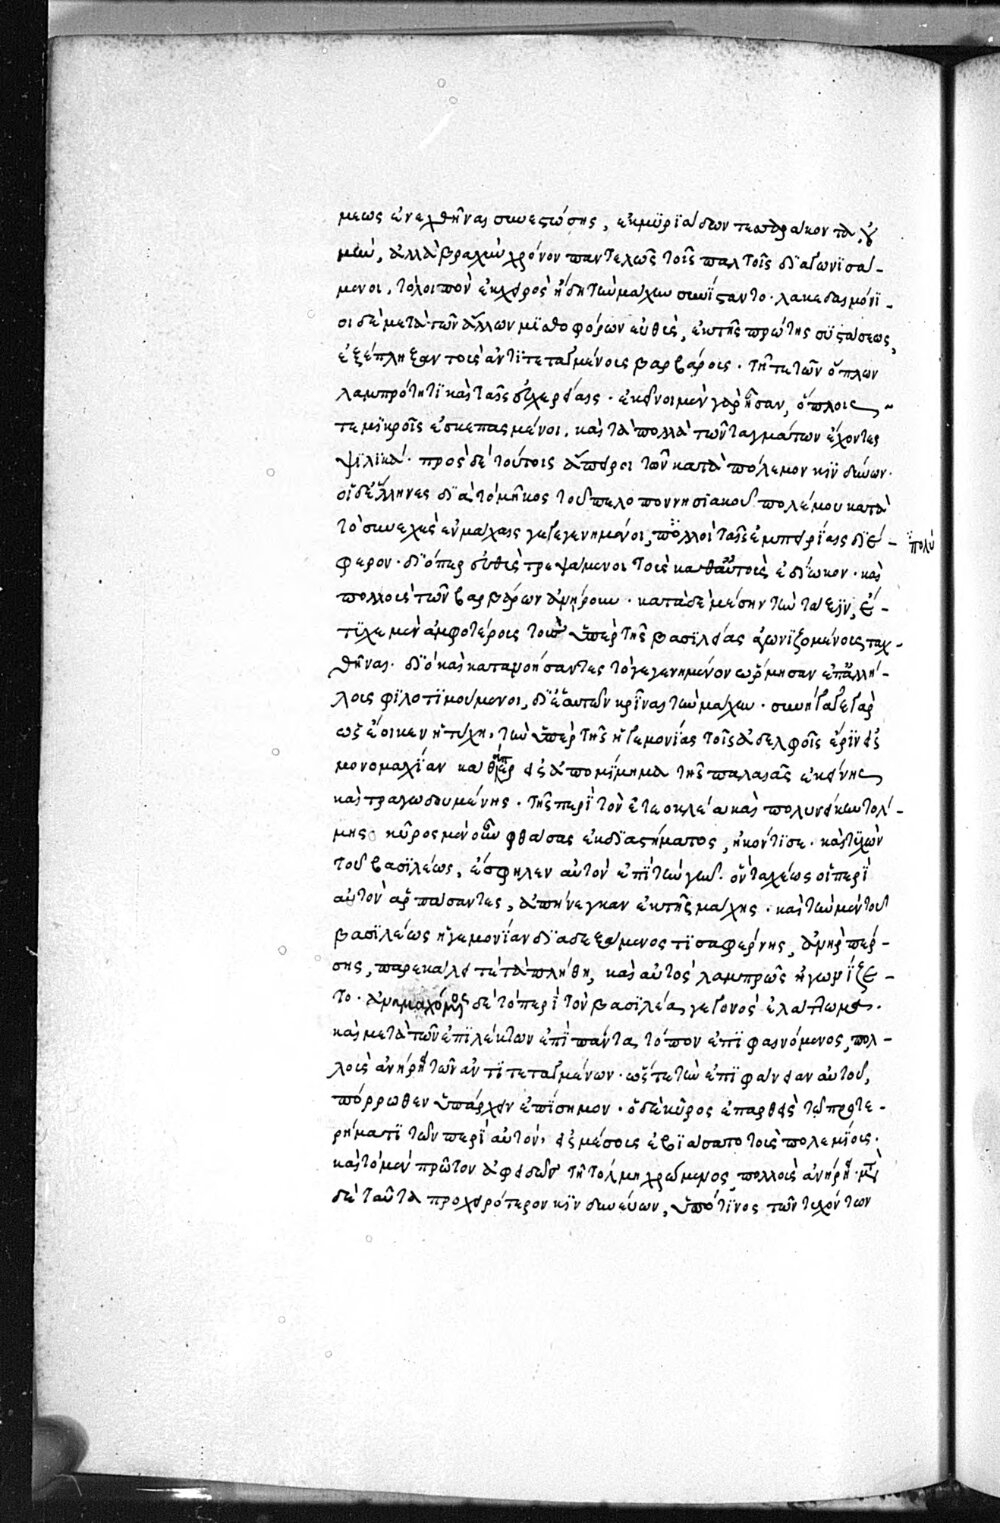 μεως ἐνεχθῆναι συνεστώσης, ἐκ μυριάδων τεσσαράκοντα, οὐ
μὴν, ἀλλὰ βραχὺν χρόνον παντελῶς τοῖς παλτοῖς διαγωνισά-
μενοι. τολοιπὸν ἐκχειρὸς ἤδη τὴν μάχην συνίσταντο. λακεδαιμόνι-
οι δὲ μετὰ τῶν ἄλλων μισθοφόρων εὐθὺς, ἐκ τῆς πρώτης συστάσεως,
ἐξέπληξαν τοὺς ἀντιτεταγμένους βαρβάρους. τῇ τε τῶν ὅπλων
λαμπρότητι καὶ ταῖς εὐχερείαις. ἐκεῖνοι μὲν γὰρ ἦσαν, ὅπλοις
τε μικροῖς ἐσκεπασμένοι. καὶ τὰ πολλὰ τῶν ταγμάτων ἔχοντες
ψιλικά. πρὸς δὲ τούτοις ἄπειροι τῶν κατὰ πόλεμον κινδύνων.
οἱ δὲ ἕλληνες διὰ τὸ μῆκος τοῦ πελοποννησιακοῦ πολέμου κατὰ
τὸ συνεχὲς ἐν μάχαις γεγενημένοι, πολλοὶ ταῖς ἐμπειρίαις διέ- πολὺ
φερον. διόπερ εὐθὺς τρεψάμενοι τοὺς καθ' αὑτοὺς ἐδίωκον. καὶ
πολλοὺς τῶν βαρβάρων ἀνῄρουν. κατὰ δὲ μέσην τὴν τάξιν, ἔ-
τυχε μὲν ἀμφοτέρους τοὺς ὑπὲρ τῆς βασιλείας ἀγωνιζομένους ταχ-
θῆναι. διὸ καὶ κατανοήσαντες τὸ γεγενημένον ὥρμησαν ἐπ' ἀλλή-
λους φιλοτιμούμενοι, δι' ἑαυτῶν κρῖναι τὴν μάχην. συνήγαγε γὰρ
ὡς ἔοικεν ἡ τύχη, τὴν ὑπὲρ τῆς ἡγεμονίας τοῖς ἀδελφοῖς ἔριν εἰς
μονομαχίαν καθάπερ εἰς ἀπομίμημα τῆς παλαιᾶς ἐκείνης
καὶ τραγωδουμένης. τῆς περὶ τὸν ἐτεοκλέα καὶ πολυνείκην τόλ-
μης κῦρος μὲν οὖν φθάσας ἐκ διαστήματος, ἠκόντισε. καὶ τυχὼν
τοῦ βασιλέως, ἔσφηλεν αὐτὸν ἐπὶ τὴν γῆν. ὃν ταχέως οἱ περὶ
αὐτὸν ἁρπάσαντες, ἀπήνεγκαν ἐκ τῆς μάχης. καὶ τὴν μὲν τοῦ
βασιλέως ἡγεμονίαν διαδεξάμενος τισαφέρνης, ἀνὴρ πέρ-
σης, παρεκάλει τε τὰ πλήθη, καὶ αὐτὸς λαμπρῶς ἠγωνίζε-
το. ἀναμαχόμενος δὲ τὸ περὶ τὸν βασιλέα γεγονὸς ἐλάττωμα.
καὶ μετὰ τῶν ἐπιλέκτων ἐπὶ πάντα τόπον ἐπιφαινόμενος, πολ-
λοὺς ἀνῄρει τῶν ἀντιτεταγμένων. ὥστε τὴν ἐπιφάνειαν αὐτοῦ,
πόρρωθεν ὑπάρχειν ἐπίσημον. ὁ δὲ κῦρος ἐπαρθεὶς τῷ προτε-
ρήματι τῶν περὶ αὐτὸν, εἰς μέσους ἐβιάσατο τοὺς πολεμίους.
καὶ τὸ μὲν πρῶτον ἀφειδῶς τῇ τόλμῃ χρώμενος πολλοὺς ἀνῄρει. μετὰ
δὲ ταῦτα προχειρότερον κινδυνεύων, ὑπό τινος τῶν τυχόντων